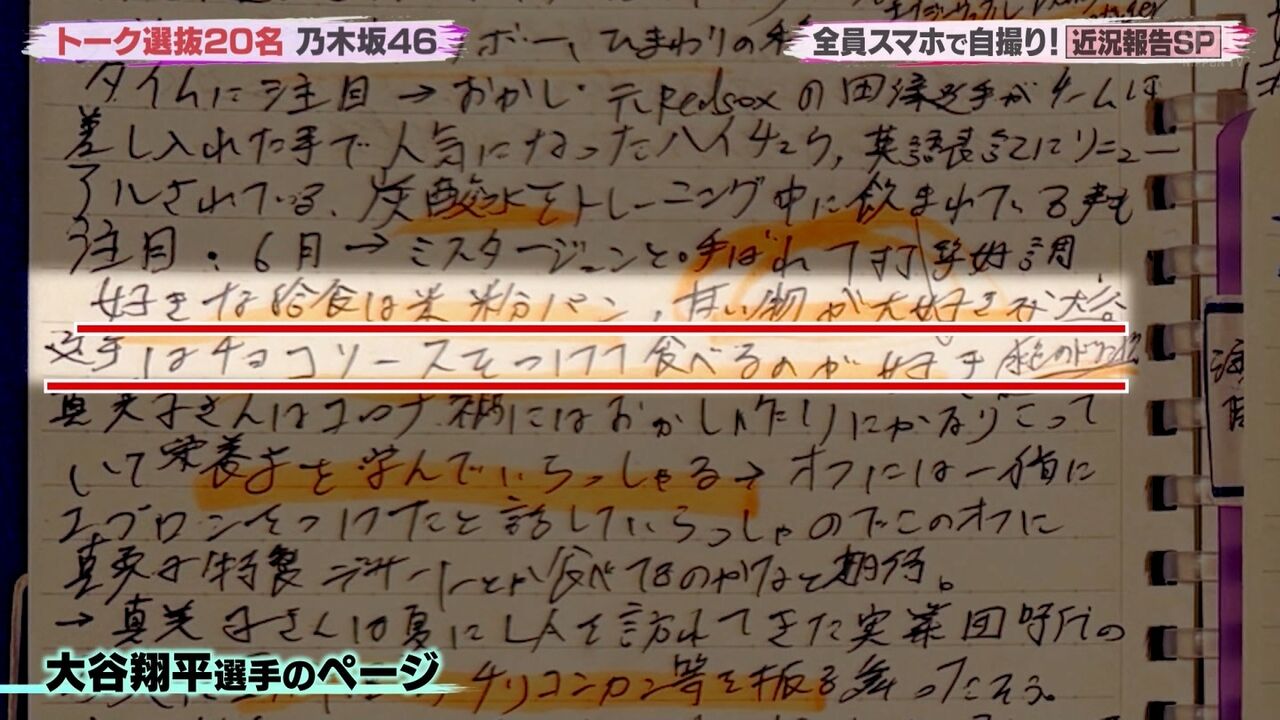 トーク選抜20名 乃木坂46
全員スマホで自撮り! 近況報告SP
ボー、ひまわりの
タイムに注目 → おかし・元Redsoxの田澤選手がチームに
差し入れた事で人気になったハイチュウ,英語表記にリニュー
アルされている、炭酸水をトレーニング中に飲まれている事も
注目。6月→ミスタージューンと呼ばれて打撃好調
好きな給食は米粉パン,甘い物が大好きな大谷
選手はチョコソースをつけて食べるのが好き
真美子さんはコロナ禍にはおかし作りにかなりこって
いて栄養学を学んでいらっしゃる→オフには一緒に
エプロンをつけたと話していらっしゃのでこのオフに
真美子特製デザートとか食べてるのかなと期待。
→真美子さんは夏にLAを訪れてきた実業団時代の
チリコンカン等を振る舞ったそう。
大谷翔平選手のページ